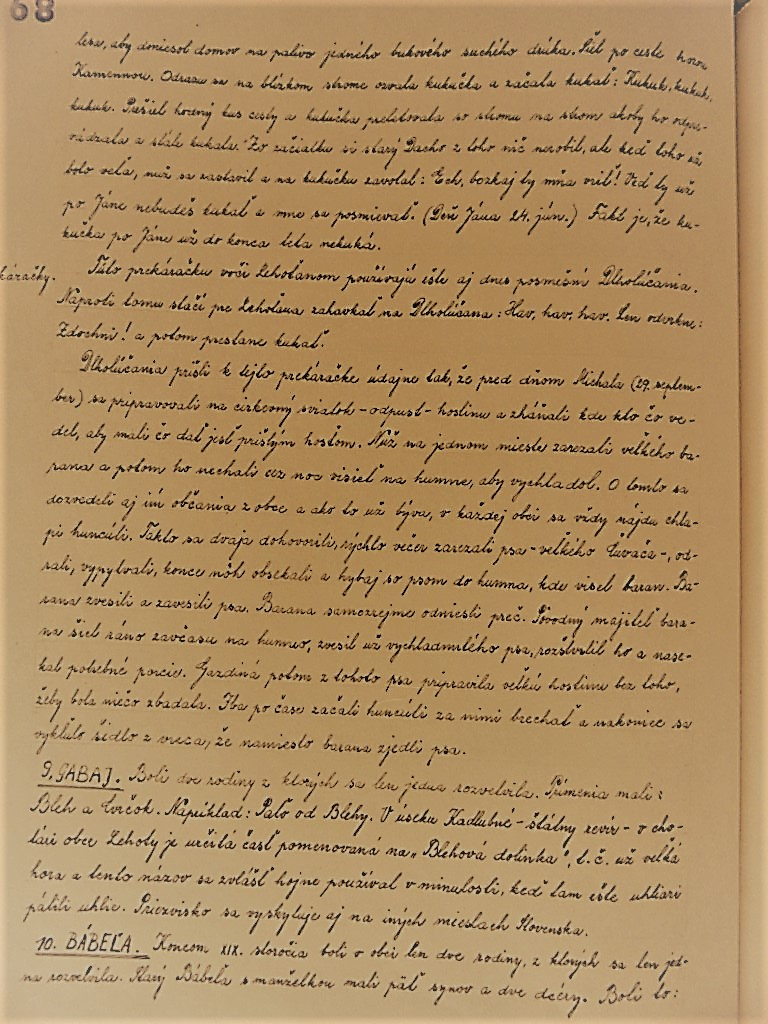 68
lesa, aby doniesol domov na palivo jedného bukového suchého drúka. Šiel po ceste horou
Kamennou. Odrazu sa na blízkom strome ozvala kukučka a začala kukať: Kukuk, kukuk,
kukuk. Prešiel hodný kus cesty a kukučka preletovala so stromu na strom akoby ho odpre-
vádzala a stále kukala. Zo začiatku si starý Dacho z toho nič nerobil, ale keď toho už
bolo veľa, nuž sa zastavil a na kukučku zavolal: Ech, bezkaj ty mňa vriť! Veď ty už
po Jáne nebudeš kukať a mne sa posmievať. (Deň Jána 24. jún.) Fakt je, že ku-
kučka po Jáne už do konca leta nekuká.
káračky.
Túto prekáračku voči Lehoťanom používajú ešte aj dnes posmešní Dlholúčania.
Naproti tomu stačí pre Lehoťana zahavkať na Dlholúčana: Hav, hav, hav. Len odvrkne:
Zdochni! a potom prestane kukať.
Dlholúčania prišli k tejto prekáračke údajne tak, že pred dňom Michala (29. septem-
ber) sa pripravovali na cirkevný sviatok - odpust - hostinu a zháňali kde kto čo ve-
del, aby mali čo dať jesť prišlým hosťom. Nuž na jednom mieste zarezali veľkého ba-
rana a potom ho nechali cez noc visieť na humne, aby vychladol. O tomto sa
dozvedeli aj iní občania z obce a ako to už býva, v každej obci sa vždy nájdu chla-
pi huncúti. Takto sa dvaja dohovorili, rýchlo večer zarezali psa - veľkého čuvača -, od-
rali, vypytvali, konce nôh obsekali a hybaj so psom do humna, kde visel baran. Ba-
rana zvesili a zavesili psa. Barana samozrejme odniesli preč. Pôvodný majiteľ bara-
na šiel ráno zavčasu na humno, zvesil už vychladnutého psa, rozštvrtil ho a nase-
kal potrebné porcie. Gazdiná potom z tohoto psa pripravila veľkú hostinu bez toho,
žeby bola niečo zbadala. Iba po čase začali huncúti za nimi brechať a nakoniec sa
vykľulo šidlo z vreca, že namiesto barana zjedli psa.
9. GABAJ. Boli dve rodiny z ktorých sa len jedna rozvetvila. Prímenia mali:
Bleh a Cvrčok. Napríklad: Paľo od Blehy. V úseku Kadlubné - štátny revír - v cho-
tári obce Lehoty je určitá časť pomenovaná na „Blehová dolinka", t. č. už veľká
hora a tento názov sa zvlášť hojne používal v minulosti, keď tam ešte uhliari
pálili uhlie. Priezvisko sa vyskytuje aj na iných miestach Slovenska.
10. BÁBEĽA. Koncom XIX. storočia boli v obci len dve rodiny, z ktorých sa len jed-
na rozvetvila. Starý Bábeľa s manželkou mali päť synov a dve dcéry. Boli to: